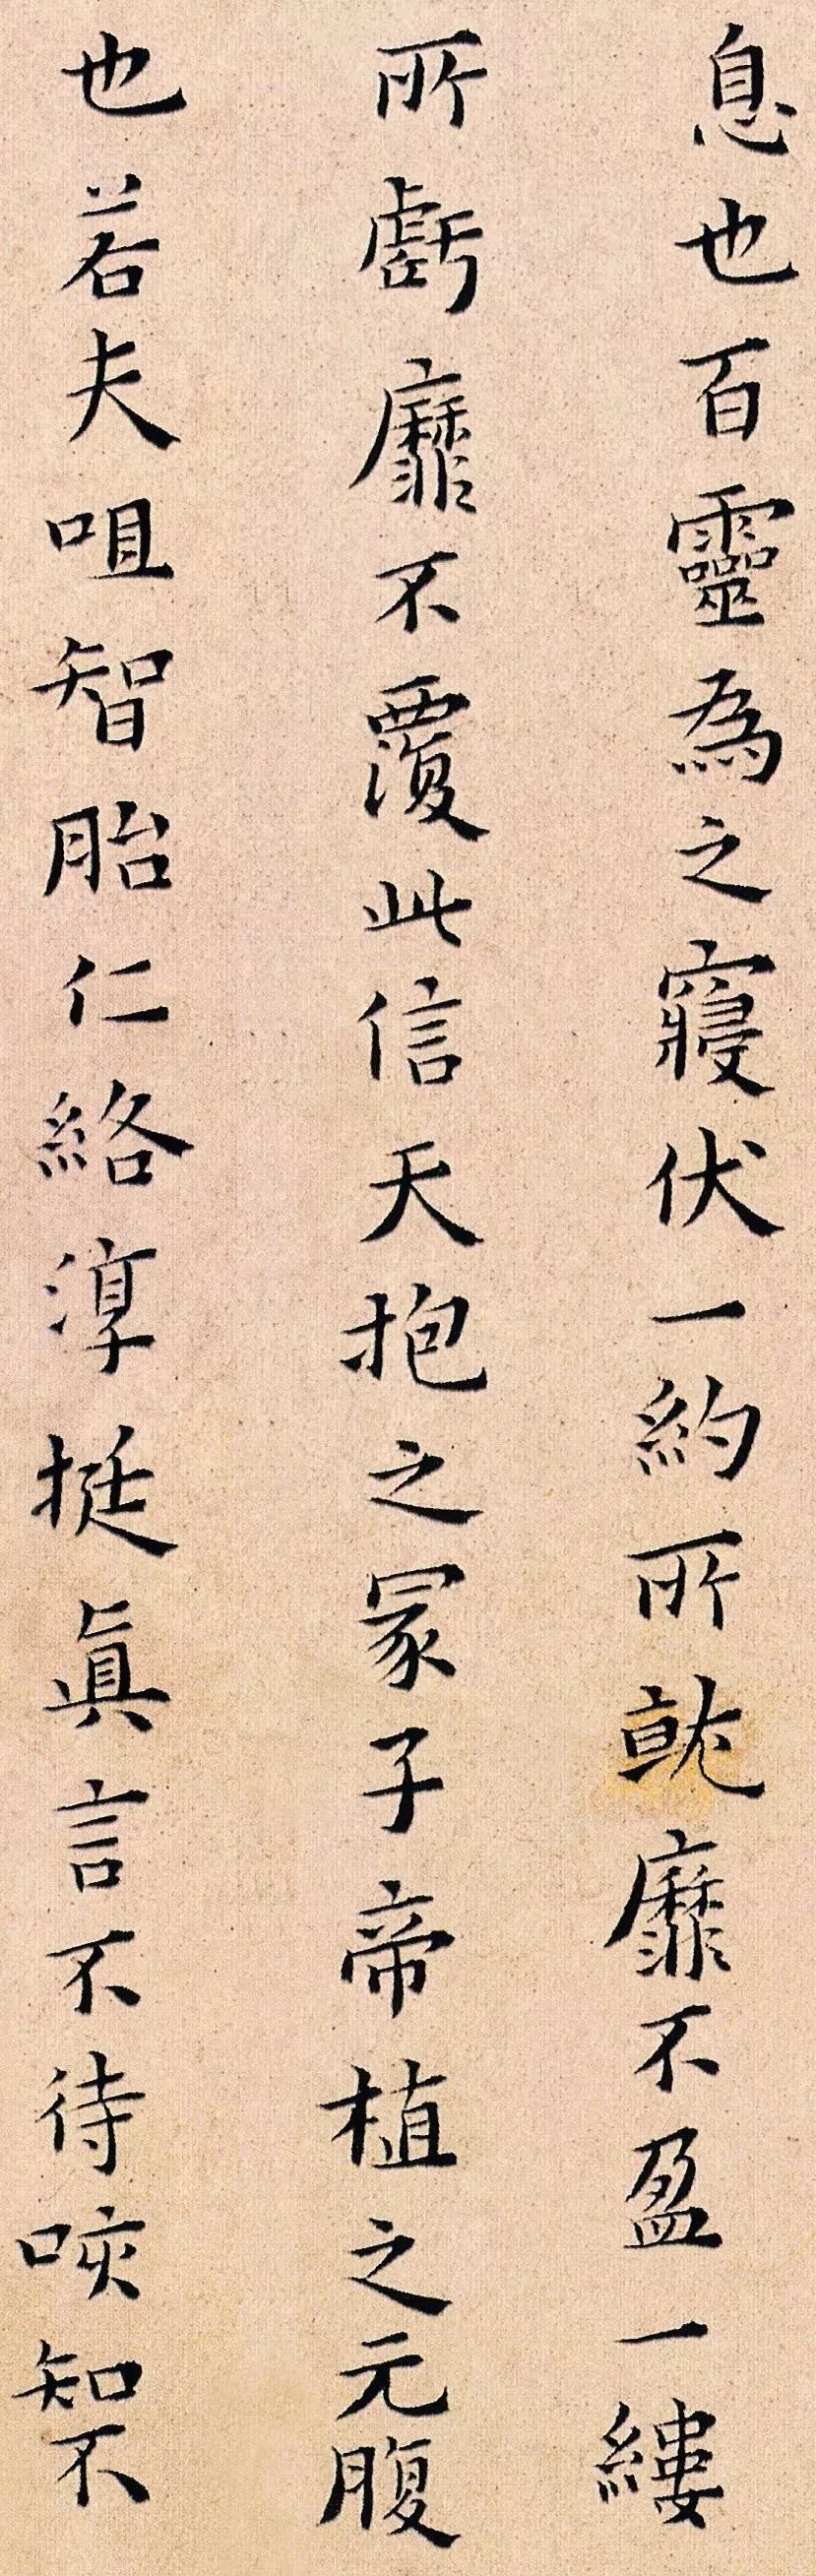 息也百靈為之寢伏一約所就靡不盈一縷
所虧靡不覆此信天抱之冢子帝植之元腹
也若夫咀智胎仁絡淳挺眞言不待咳知不